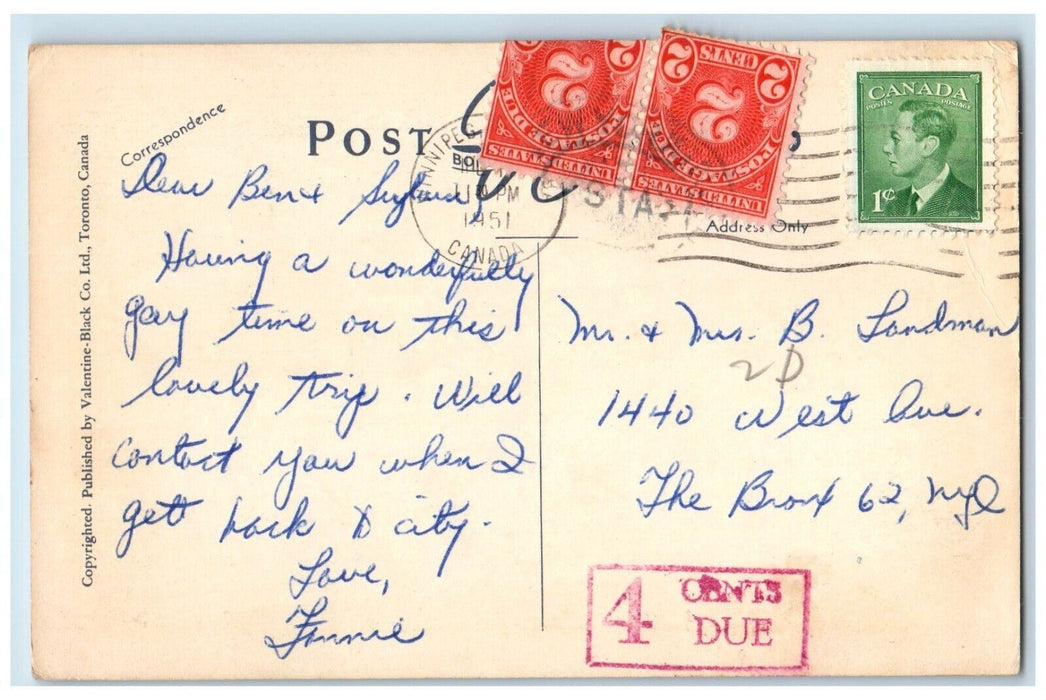 Correspondence
POST
Copyrighted. Published by Valentine-Black Co. Ltd., Toronto, Canada
2
CENTS
2
POSTAGE DUE
UNITED STATES
2
2
CENTS
2
POSTAGE DUE
UNITED STATES
CANADA
POSTES POSTAGE
1¢
WINNIPEG
PM
1951
CANADA
Address Only
Dear Ben &
Having a wonderfully
gay time on this
lovely trip. Will
contact you when I
get back to city.
Love,
Fannie
Mr. & Mrs. B. Landman
2D
1440 West Ave.
The Bronx 62, NY
4 CENTS
DUE